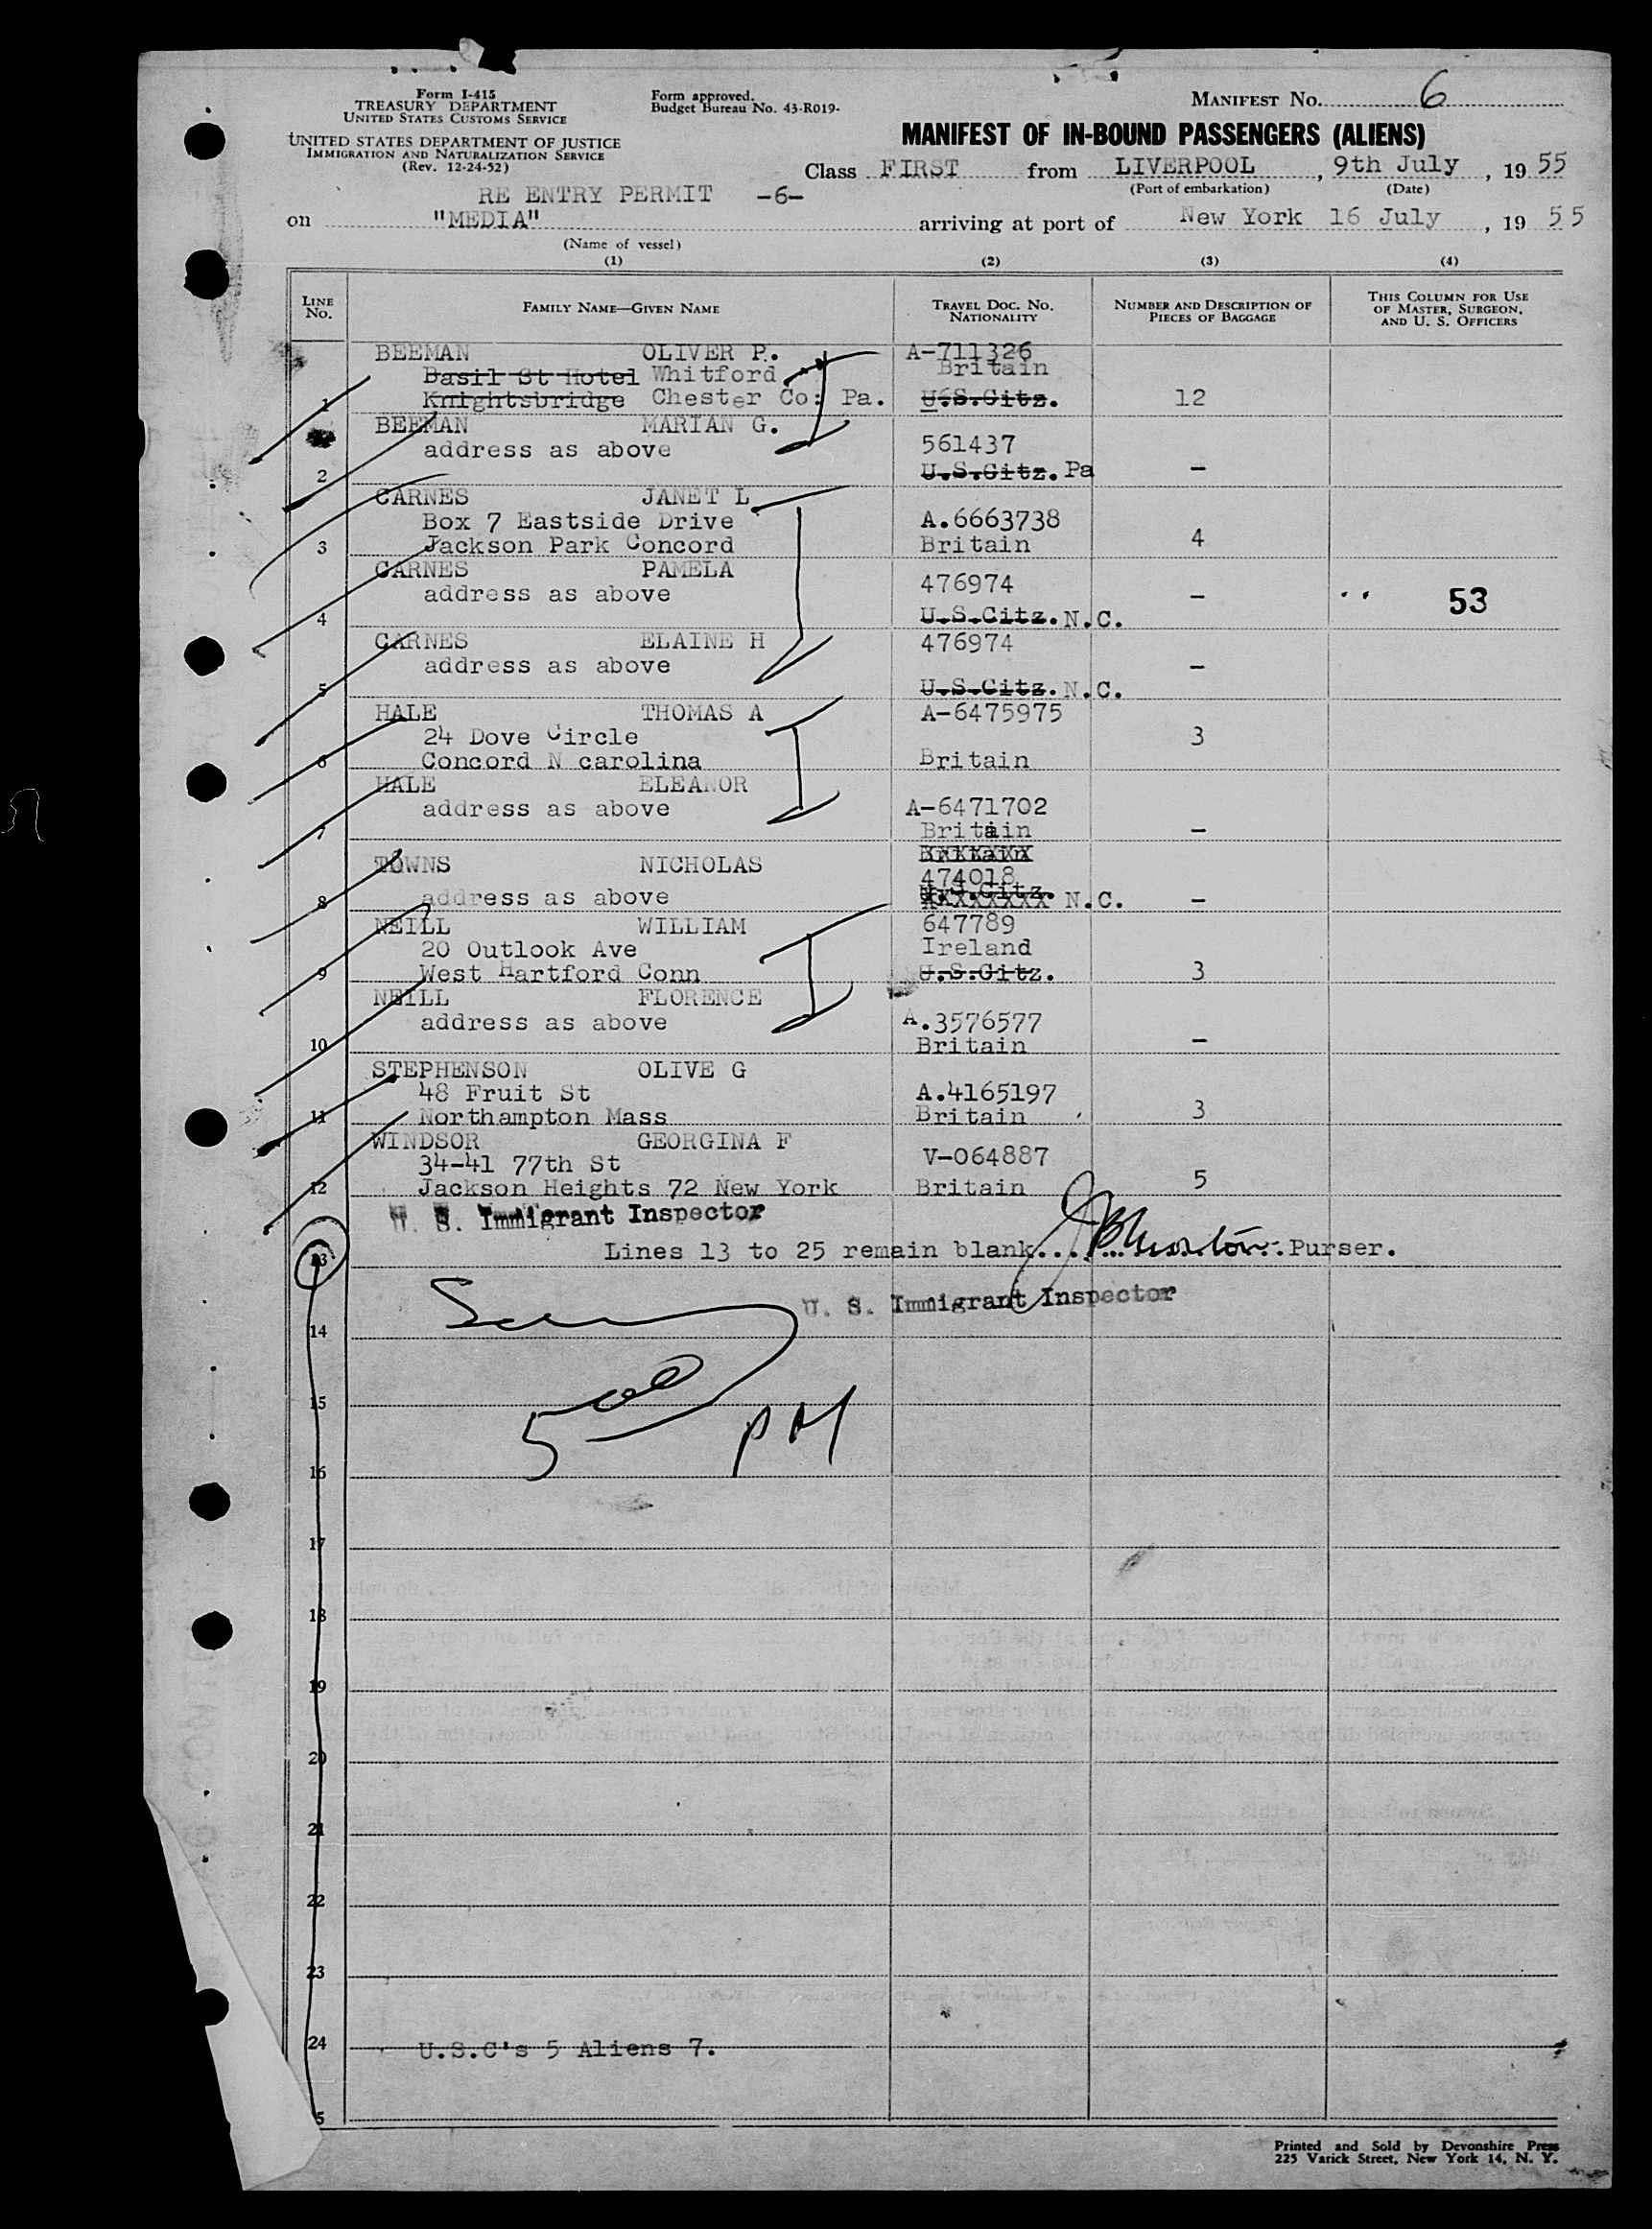 Form I-415
TREASURY DEPARTMENT
UNITED STATES CUSTOMS SERVICE
UNITED STATES DEPARTMENT OF JUSTICE
IMMIGRATION AND NATURALIZATION SERVICE
(Rev. 12-24-52)
Form approved.
Budget Bureau No. 43-R019-
MANIFEST NO. 6
MANIFEST OF IN-BOUND PASSENGERS (ALIENS)
Class FIRST from LIVERPOOL, 9th July, 1955
(Port of embarkation) (Date)
RE ENTRY PERMIT -6-
on "MEDIA" arriving at port of New York 16 July, 1955
(Name of vessel)
(1) (2) (3) (4)
LINE NO. FAMILY NAME—GIVEN NAME TRAVEL DOC. NO. NATIONALITY NUMBER AND DESCRIPTION OF PIECES OF BAGGAGE THIS COLUMN FOR USE OF MASTER, SURGEON, AND U. S. OFFICERS
BEEMAN OLIVER P. A-711326
Basil St Hotel Whitford Britain
1 Knightsbridge Chester Co: Pa. U.S.Citz. 12
BEEMAN MARIAN G.
address as above 561437
2 U.S.Citz. Pa -
CARNES JANET L
Box 7 Eastside Drive A.6663738
3 Jackson Park Concord Britain 4
CARNES PAMELA
address as above 476974 -
4 U.S.Citz. N.C. 53
CARNES ELAINE H 476974
address as above -
5 U.S.Citz. N.C.
HALE THOMAS A A-6475975
24 Dove Circle 3
6 Concord N carolina Britain
HALE ELEANOR
address as above A-6471702
7 Britain -
Britain
TOWNS NICHOLAS 474018
8 address as above U.S.Citz. N.C. -
NEILL WILLIAM 647789
20 Outlook Ave Ireland
9 West Hartford Conn U.S.Citz. 3
NEILL FLORENCE
address as above A.3576577
10 Britain -
STEPHENSON OLIVE G
48 Fruit St A.4165197
11 Northampton Mass Britain 3
WINDSOR GEORGINA F
34-41 77th St V-064887
12 Jackson Heights 72 New York Britain 5
U. S. Immigrant Inspector
13 Lines 13 to 25 remain blank. Purser.
U. S. Immigrant Inspector
14
15
5 00 PM
16
17
18
19
20
21
22
23
24 U.S.C's 5 Aliens 7.
5
Printed and Sold by Devonshire Press
225 Varick Street, New York 14, N. Y.